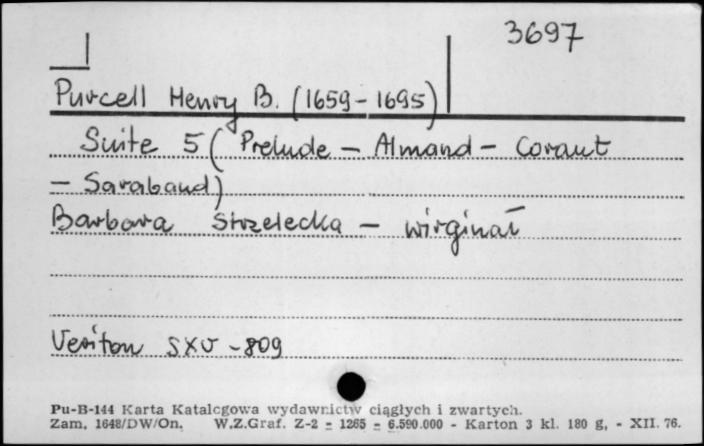 3697
Purcell Henry B. (1659-1695)
Suite 5 ( Prelude - Almand - Corant
- Saraband)
Barbara Strzelecka - wirginał
Veriton SXV -809
Pu-B-144 Karta Katalogowa wydawnictw ciągłych i zwartych.
Zam. 1648/DW/On. W.Z.Graf. Z-2 = 1265 = 6.590.000 - Karton 3 kl. 180 g, - XII. 76.